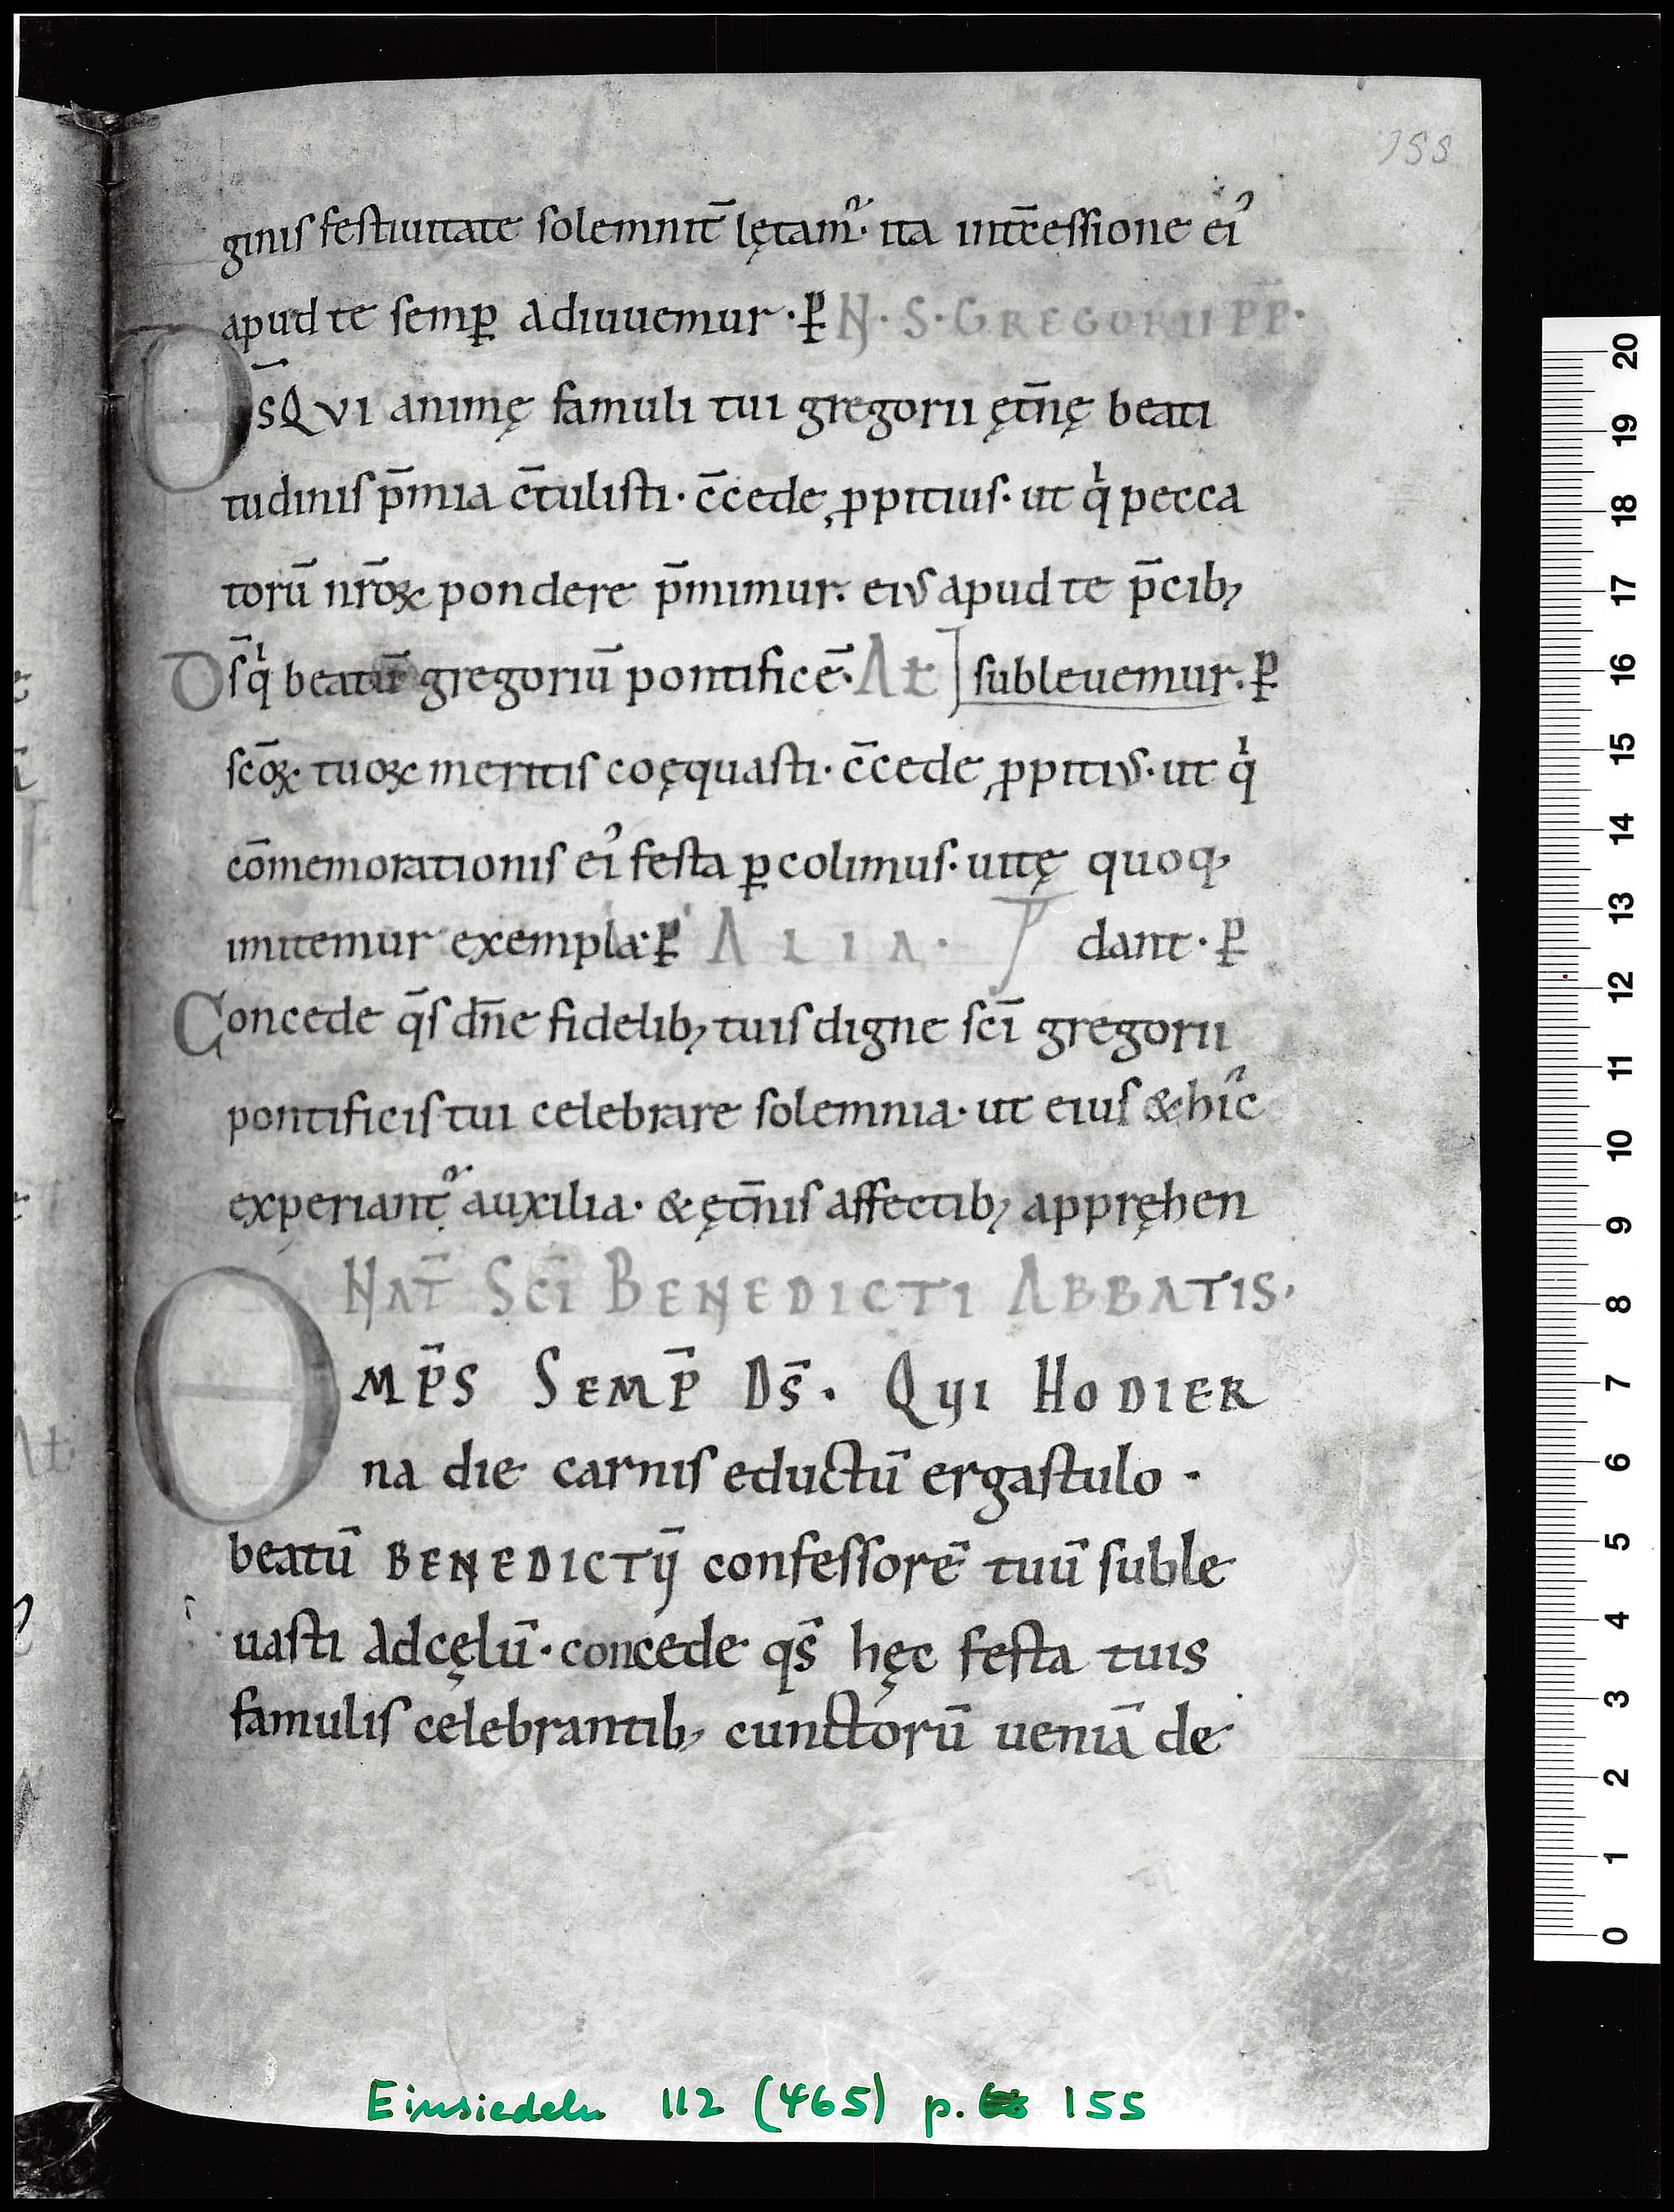 155
ginis festiuitate solemnit̄ lętamᷣ· ita int̄cessione eiꝰ
apud te semꝑ adiuuemur·ꝑ N·S·GREGORII P̄P̄·
D̄S QVI animę famuli tui gregorii ęt̄nę beati
tudinis p̄mia c̄tulisti· c̄cede ꝓpitius· ut qͥ pecca
torū nr̄oꝝ pondere p̄mimur· eius apud te p̄cib;
D̄s qͥ beatū gregoriū pontificē· At] subleuemur·ꝑ
sc̄oꝝ tuoꝝ meritis coęquasti· c̄cede ꝓpitius· ut qͥ
cōmemorationis eiꝰ festa ꝑcolimus· uitę quoq;
imitemur exempla·ꝑ ALIA· dant·ꝑ
Concede q̄s dn̄e fidelib; tuis digne sc̄i gregorii
pontificis tui celebrare solemnia· ut eius & hic̄
experiantᷣ auxilia· & ęt̄nis affectib; appręhen
NAT̄ SC̄I BENEDICTI ABBATIS·
OMP̄S SEMP̄ DS̄· QUI HODIER
na die carnis eductū ergastulo·
beatū BENEDICTŪ confessorē tuū suble
uasti ad cęlū· concede qs̄ hęc festa tuis
famulis celebrantib; cunctorū ueniā de
Einsiedeln 112 (465) p. 155
20
19
18
17
16
15
14
13
12
11
10
9
8
7
6
5
4
3
2
1
0